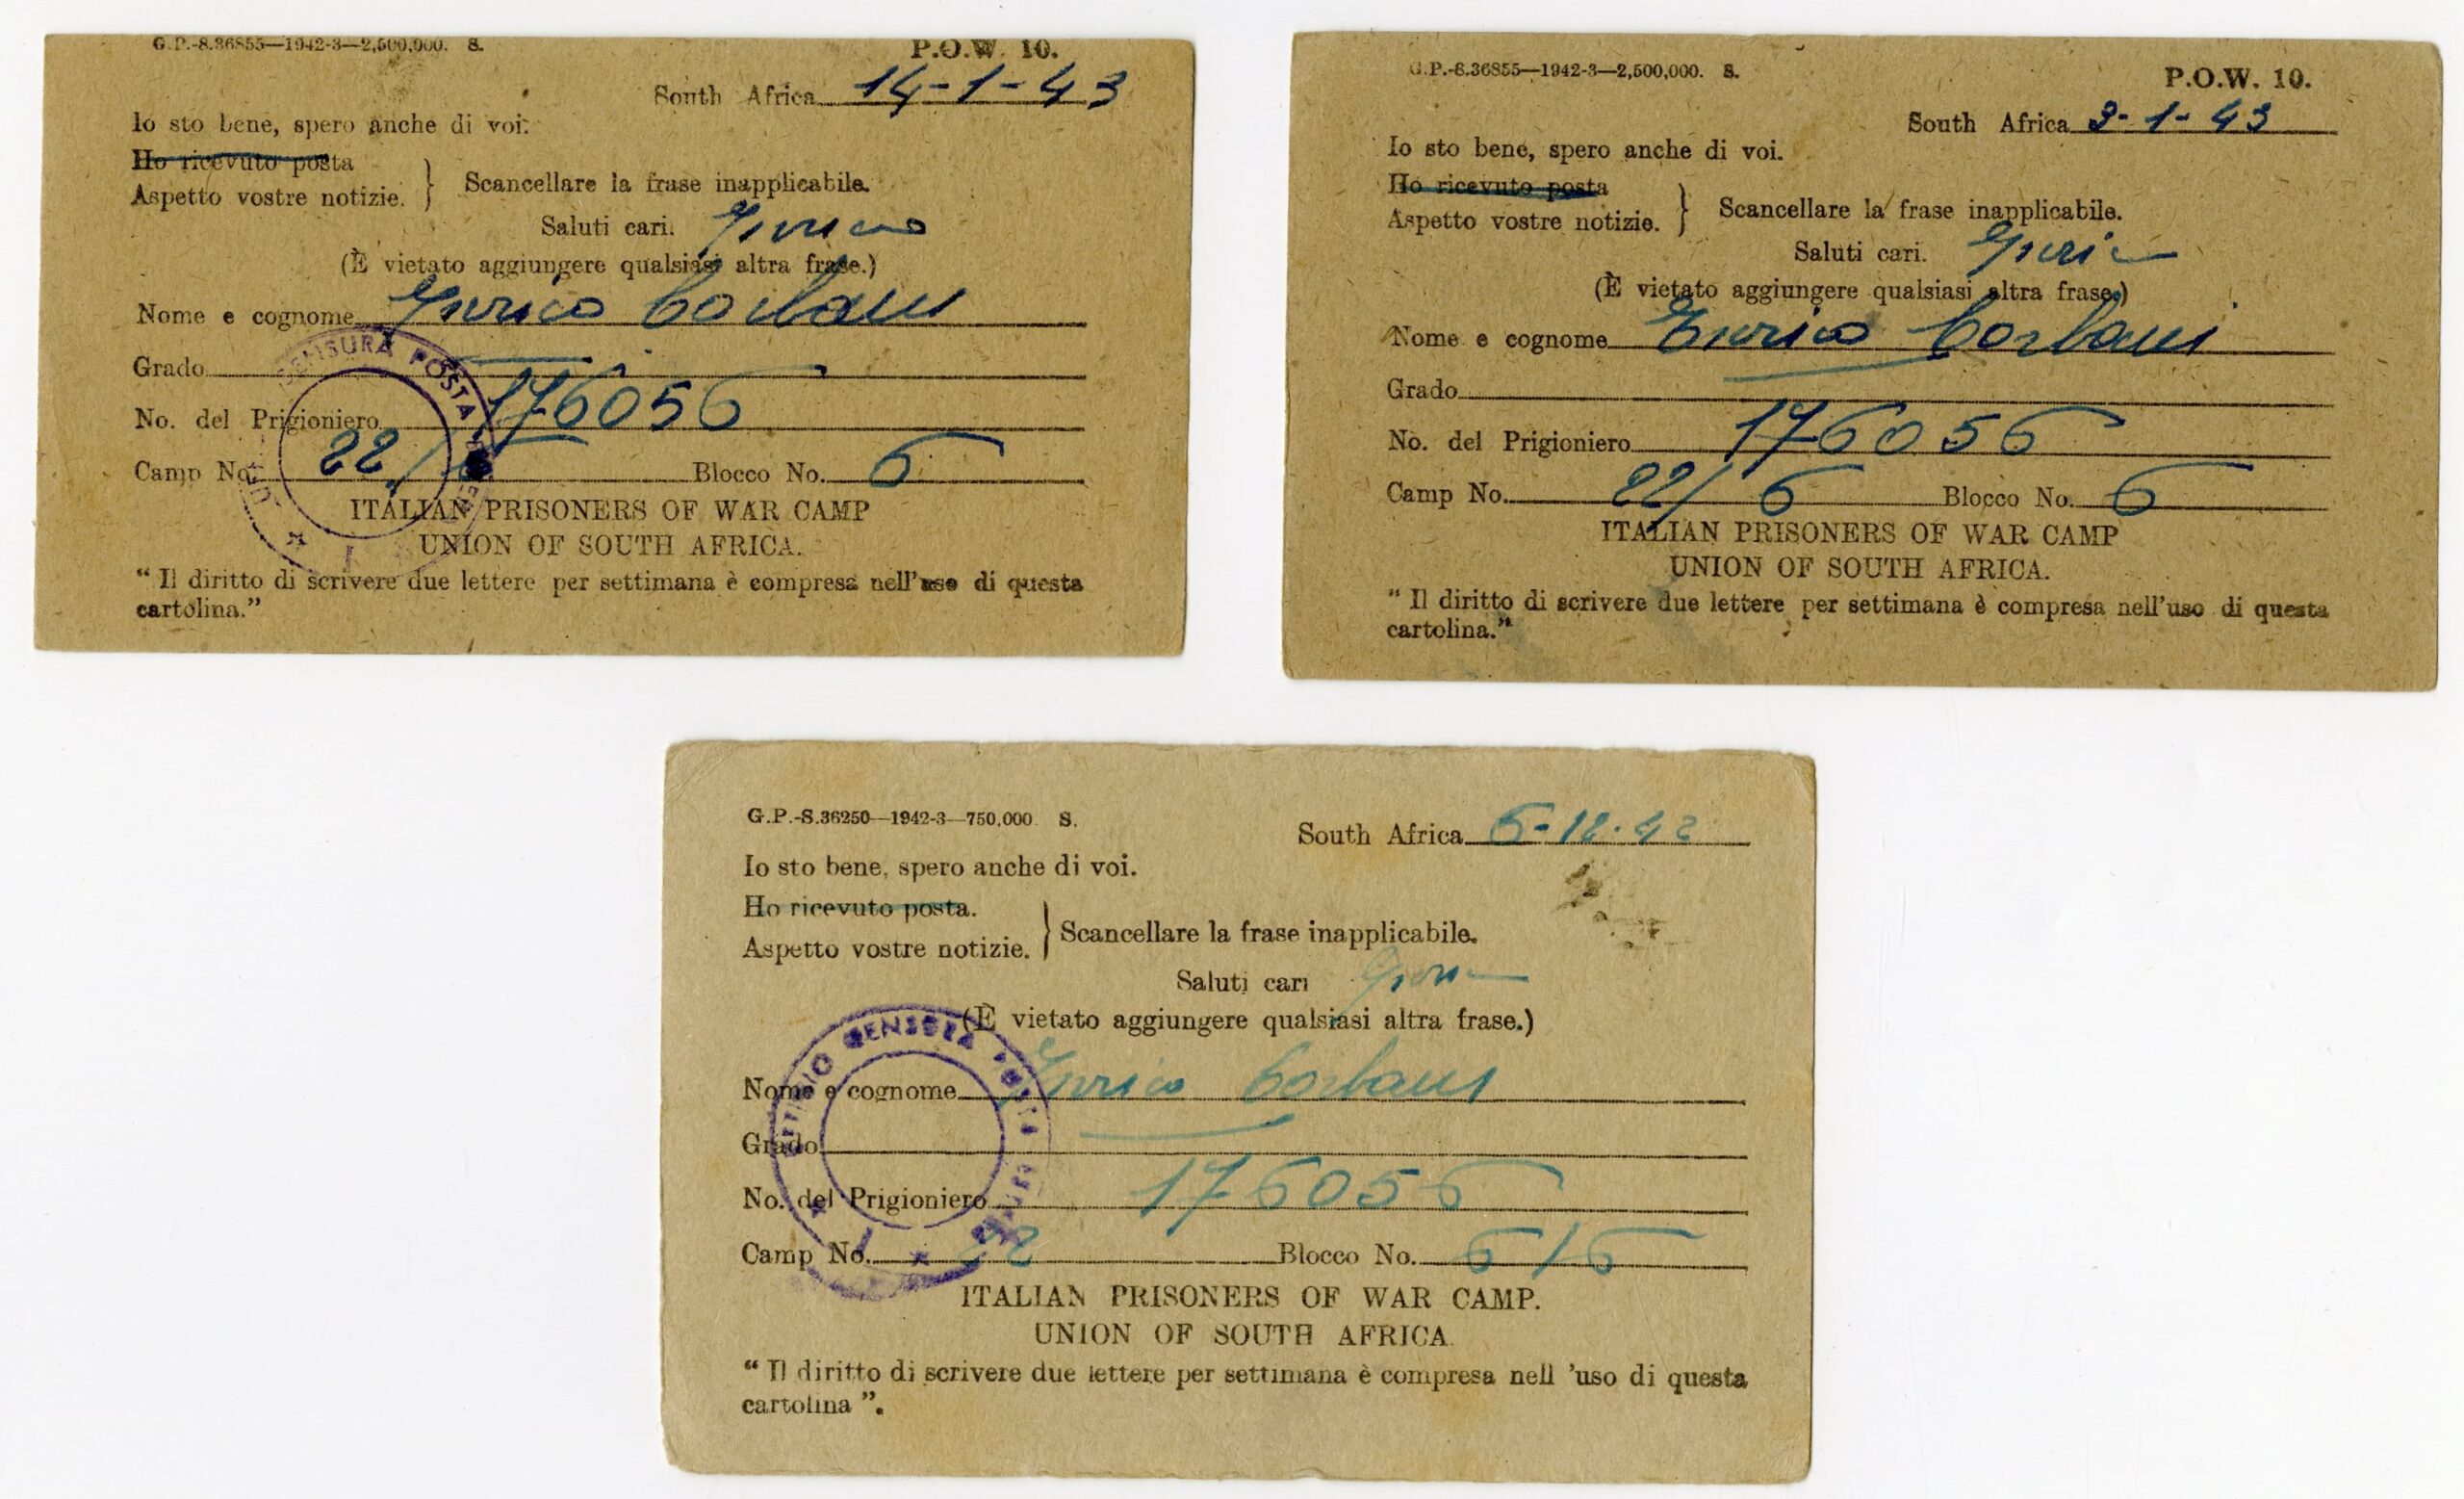 G.P.-S.36855—1942-3—2,500,000. S.
P.O.W. 10.
South Africa 14-1-43
Io sto bene, spero anche di voi.
Ho ricevuto posta
Aspetto vostre notizie. } Scancellare la frase inapplicabile.
Saluti cari. Enrico
(È vietato aggiungere qualsiasi altra frase.)
Nome e cognome Enrico Corbani
Grado
No. del Prigioniero 176056
Camp No. 22/ Blocco No. 6
ITALIAN PRISONERS OF WAR CAMP
UNION OF SOUTH AFRICA.
“ Il diritto di scrivere due lettere per settimana è compresa nell'uso di questa
cartolina.”
CENSURA POSTA
G.P.-S.36855—1942-3—2,500,000. S.
P.O.W. 10.
South Africa 3-1-43
Io sto bene, spero anche di voi.
Ho ricevuto posta
Aspetto vostre notizie. } Scancellare la frase inapplicabile.
Saluti cari. Enrico
(È vietato aggiungere qualsiasi altra frase.)
Nome e cognome Enrico Corbani
Grado
No. del Prigioniero 176056
Camp No. 22/6 Blocco No. 6
ITALIAN PRISONERS OF WAR CAMP
UNION OF SOUTH AFRICA.
“ Il diritto di scrivere due lettere per settimana è compresa nell'uso di questa
cartolina.”
G.P.-S.36250—1942-3—750,000 S.
South Africa 6-12-42
Io sto bene, spero anche di voi.
Ho ricevuto posta.
Aspetto vostre notizie. } Scancellare la frase inapplicabile.
Saluti cari
(È vietato aggiungere qualsiasi altra frase.)
Nome e cognome Enrico Corbani
Grado
No. del Prigioniero 176056
Camp No. 22 Blocco No. 6/6
ITALIAN PRISONERS OF WAR CAMP.
UNION OF SOUTH AFRICA
“ Il diritto di scrivere due lettere per settimana è compresa nell 'uso di questa
cartolina ”.
UFFICIO CENSURA POSTA